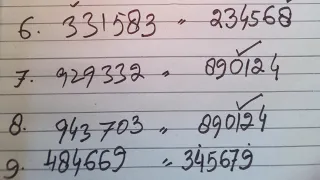 6. 331583 = 234568
7. 929332 = 890124
8. 943703 = 890124
9. 484669 = 345679